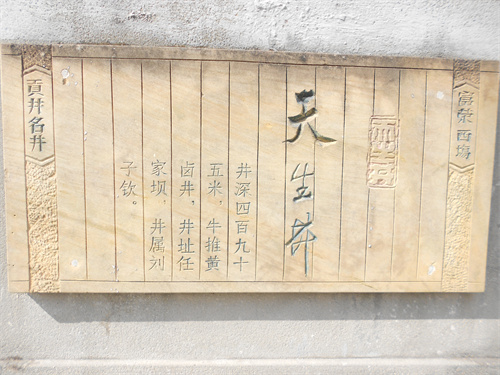 富荣西场
天生井
井深四百九十
五米，牛推黄
卤井，井址任
家坝，井属刘
子钦。
贡井名井